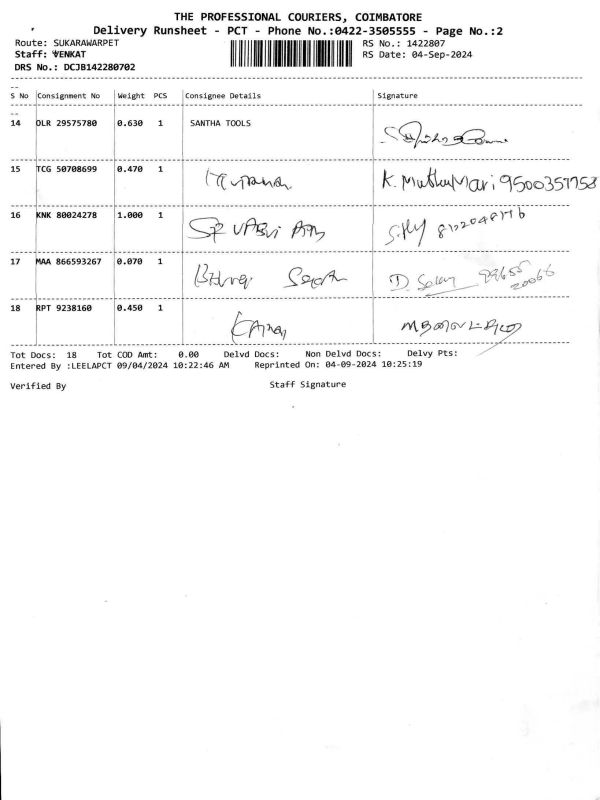 THE PROFESSIONAL COURIERS, COIMBATORE
Delivery Runsheet - PCT - Phone No.:0422-3505555 - Page No.:2
Route: SUKARAWARPET RS No.: 1422807
Staff: VENKAT RS Date: 04-Sep-2024
DRS No.: DCJB142280702
--
S No Consignment No Weight PCS Consignee Details Signature
--
14 OLR 29575780 0.630 1 SANTHA TOOLS
15 TCG 50708699 0.470 1 K. MuthuMari 9500357758
16 KNK 80024278 1.000 1
17 MAA 866593267 0.070 1
18 RPT 9238160 0.450 1
Tot Docs: 18 Tot COD Amt: 0.00 Delvd Docs: Non Delvd Docs: Delvy Pts:
Entered By :LEELAPCT 09/04/2024 10:22:46 AM Reprinted On: 04-09-2024 10:25:19
Verified By Staff Signature